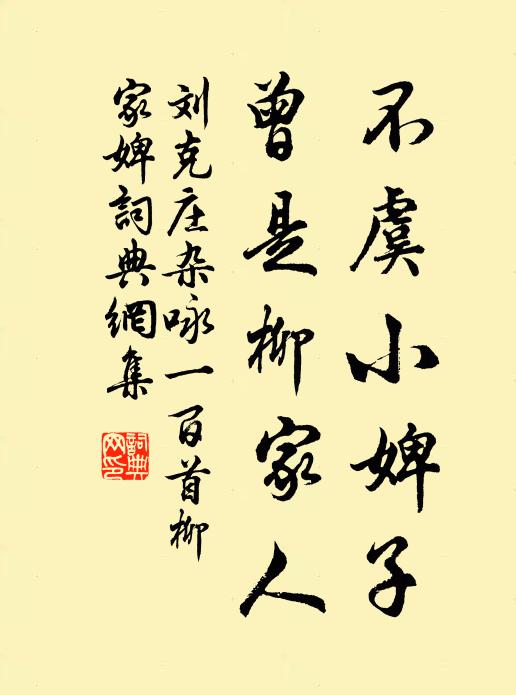 不虞小婢子
曾是柳家人
刘克庄杂咏一百首柳
家婢詞典網集
詞典网印